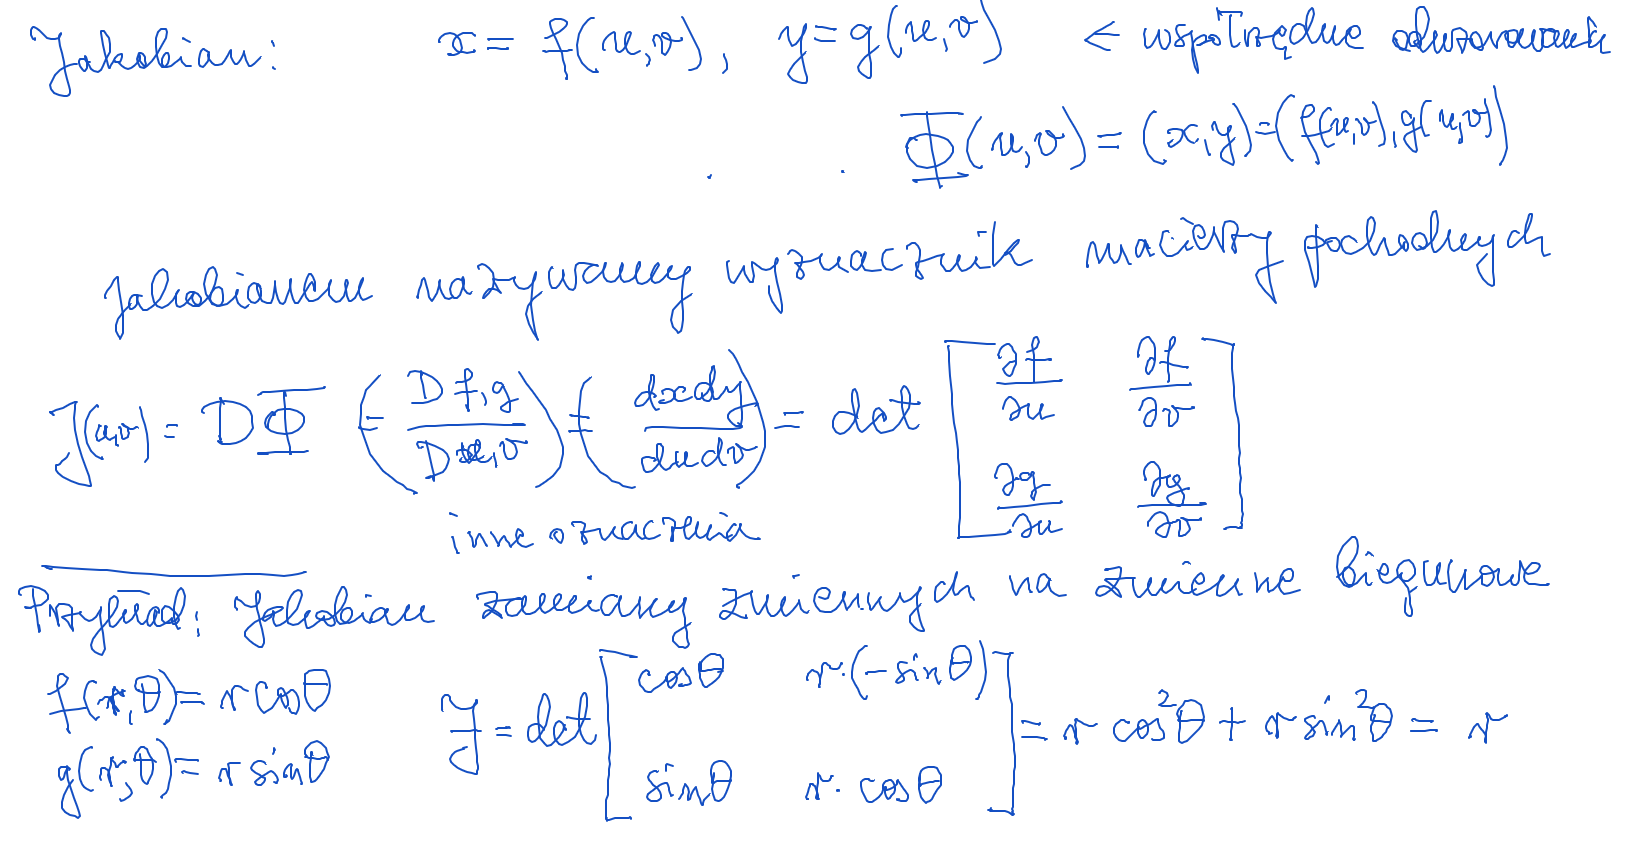 Jakobian: x = f(u,v), y = g(u,v) ← współrzędne odwzorowania
Φ(u,v) = (x,y) = (f(u,v), g(u,v))
Jakobianem nazywamy wyznacznik macierzy pochodnych
J(u,v) = DΦ (= D f,g / D u,v) = (dxdy / dudv) = det [ ∂f/∂u ∂f/∂v ; ∂g/∂u ∂g/∂v ]
inne oznaczenia
Przykład: Jakobian zamiany zmiennych na zmienne biegunowe
f(r,θ) = r cosθ
g(r,θ) = r sinθ
J = det [ cosθ r·(-sinθ) ; sinθ r·cosθ ] = r cos²θ + r sin²θ = r